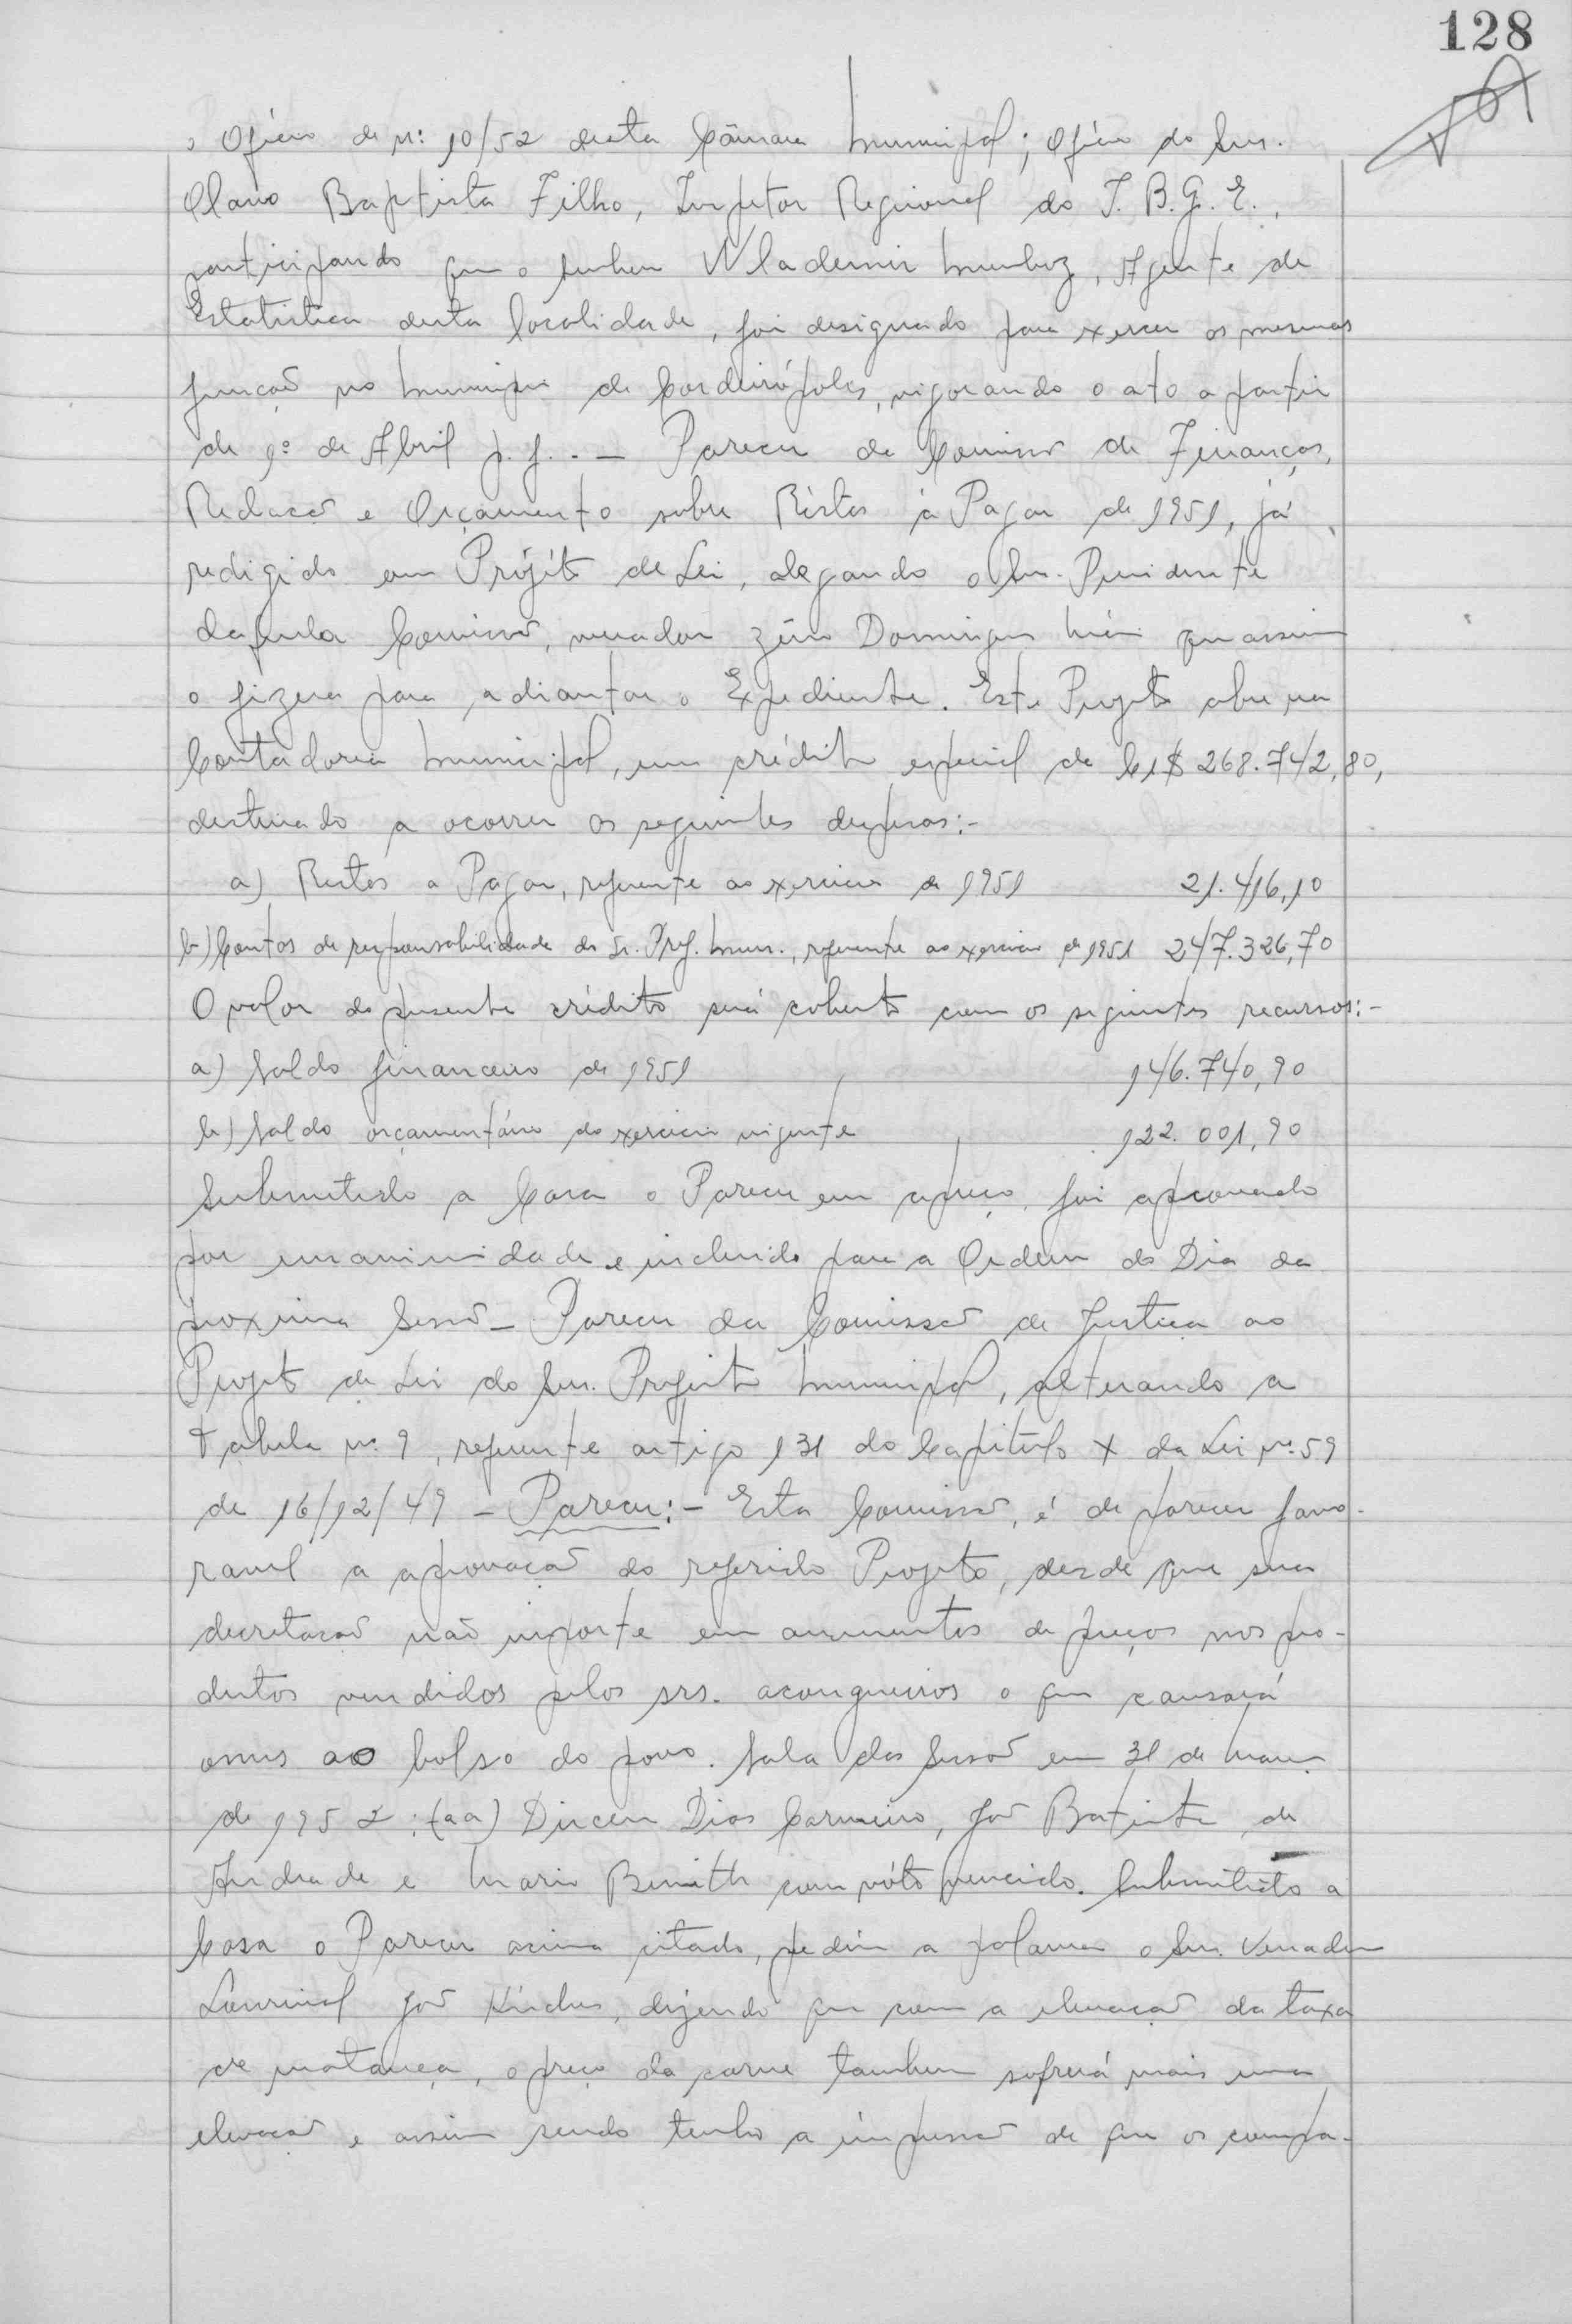 128
o Oficio de nº: 10/52 desta Câmara Municipal; Oficio do Snr.
Olavo Baptista Filho, Inspetor Regional do I.B.G.E.,
participando que o senhor Wlademir Munhoz, Agente de
Estatistica desta localidade, foi designado para exercer as mesmas
função no Municipio de Cordeirópolis, vigorando o ato a partir
de 1º de Abril p.f.. — Parecer da Comissão de Finanças,
Redação e Orçamento sobre Réstos á Pagar de 1951, já
redigido em Projéto de Lei, alegando o Snr. Presidente
daquela Comissão, vereador Domingos que assim
o fizera para adiantar o Expediente. Este Projeto abre na
Contadoria Municipal, um crédito especial de Cr$ 268.742,80,
destinado a ocorrer as seguintes despesas:-
a) Restos a Pagar, referente ao exercicio de 1951 21.416,10
b) Contas de responsabilidade do Sr. Pref. Mun., referente ao exercicio de 1951 247.326,70
O valor do presente crédito será coberto com os seguintes recursos:-
a) Saldo financeiro de 1951 146.740,90
b) Saldo orçamentário do exercicio vigente 122.001,90
Submetido a Casa o Parecer em apreço, foi aprovado
por unanimidade e incluido para a Ordem do Dia da
proxima Sessão — Parecer da Comissão de Justiça ao
Projeto de Lei do Snr. Prefeito Municipal, alterando a
tabela nº 9, referente artigo 131 do Capitúlo X da Lei nº 59
de 16/12/49 — Parecer:- Esta Comissão, é de parecer favo-
ravel a aprovação do referido Projeto, desde que sua
decretação não importe em aumentos de preços nos pro-
dutos vendidos pelos srs. açougueiros o que causará
onus ao bolso do povo. Sala das Sessões em 31 de Março
de 1952: (aa) Dirceu Dias Carneiro, João Batista de
Andrade e Mario com vóto vencido. Submetido a
Casa o Parecer acima citado, pediu a palavra o Snr. Vereador
Lourival João, dizendo que com a elevação da taxa
de matança, o preço da carne tambem sofrerá mais uma
elevação e assim sendo tenho a impressão de que os compa-